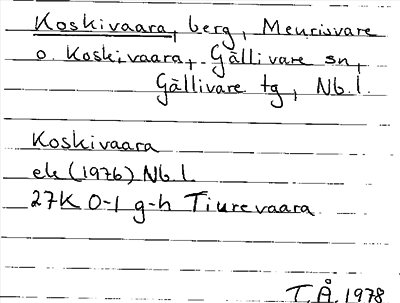 Koskivaara, berg, Meurisvare
o. Koskivaara, Gällivare sn,
Gällivare tg, Nb.l.
Koskivaara
ek (1976) Nb l.
27K 0-1 g-h Tiurevaara
T.Å. 1978